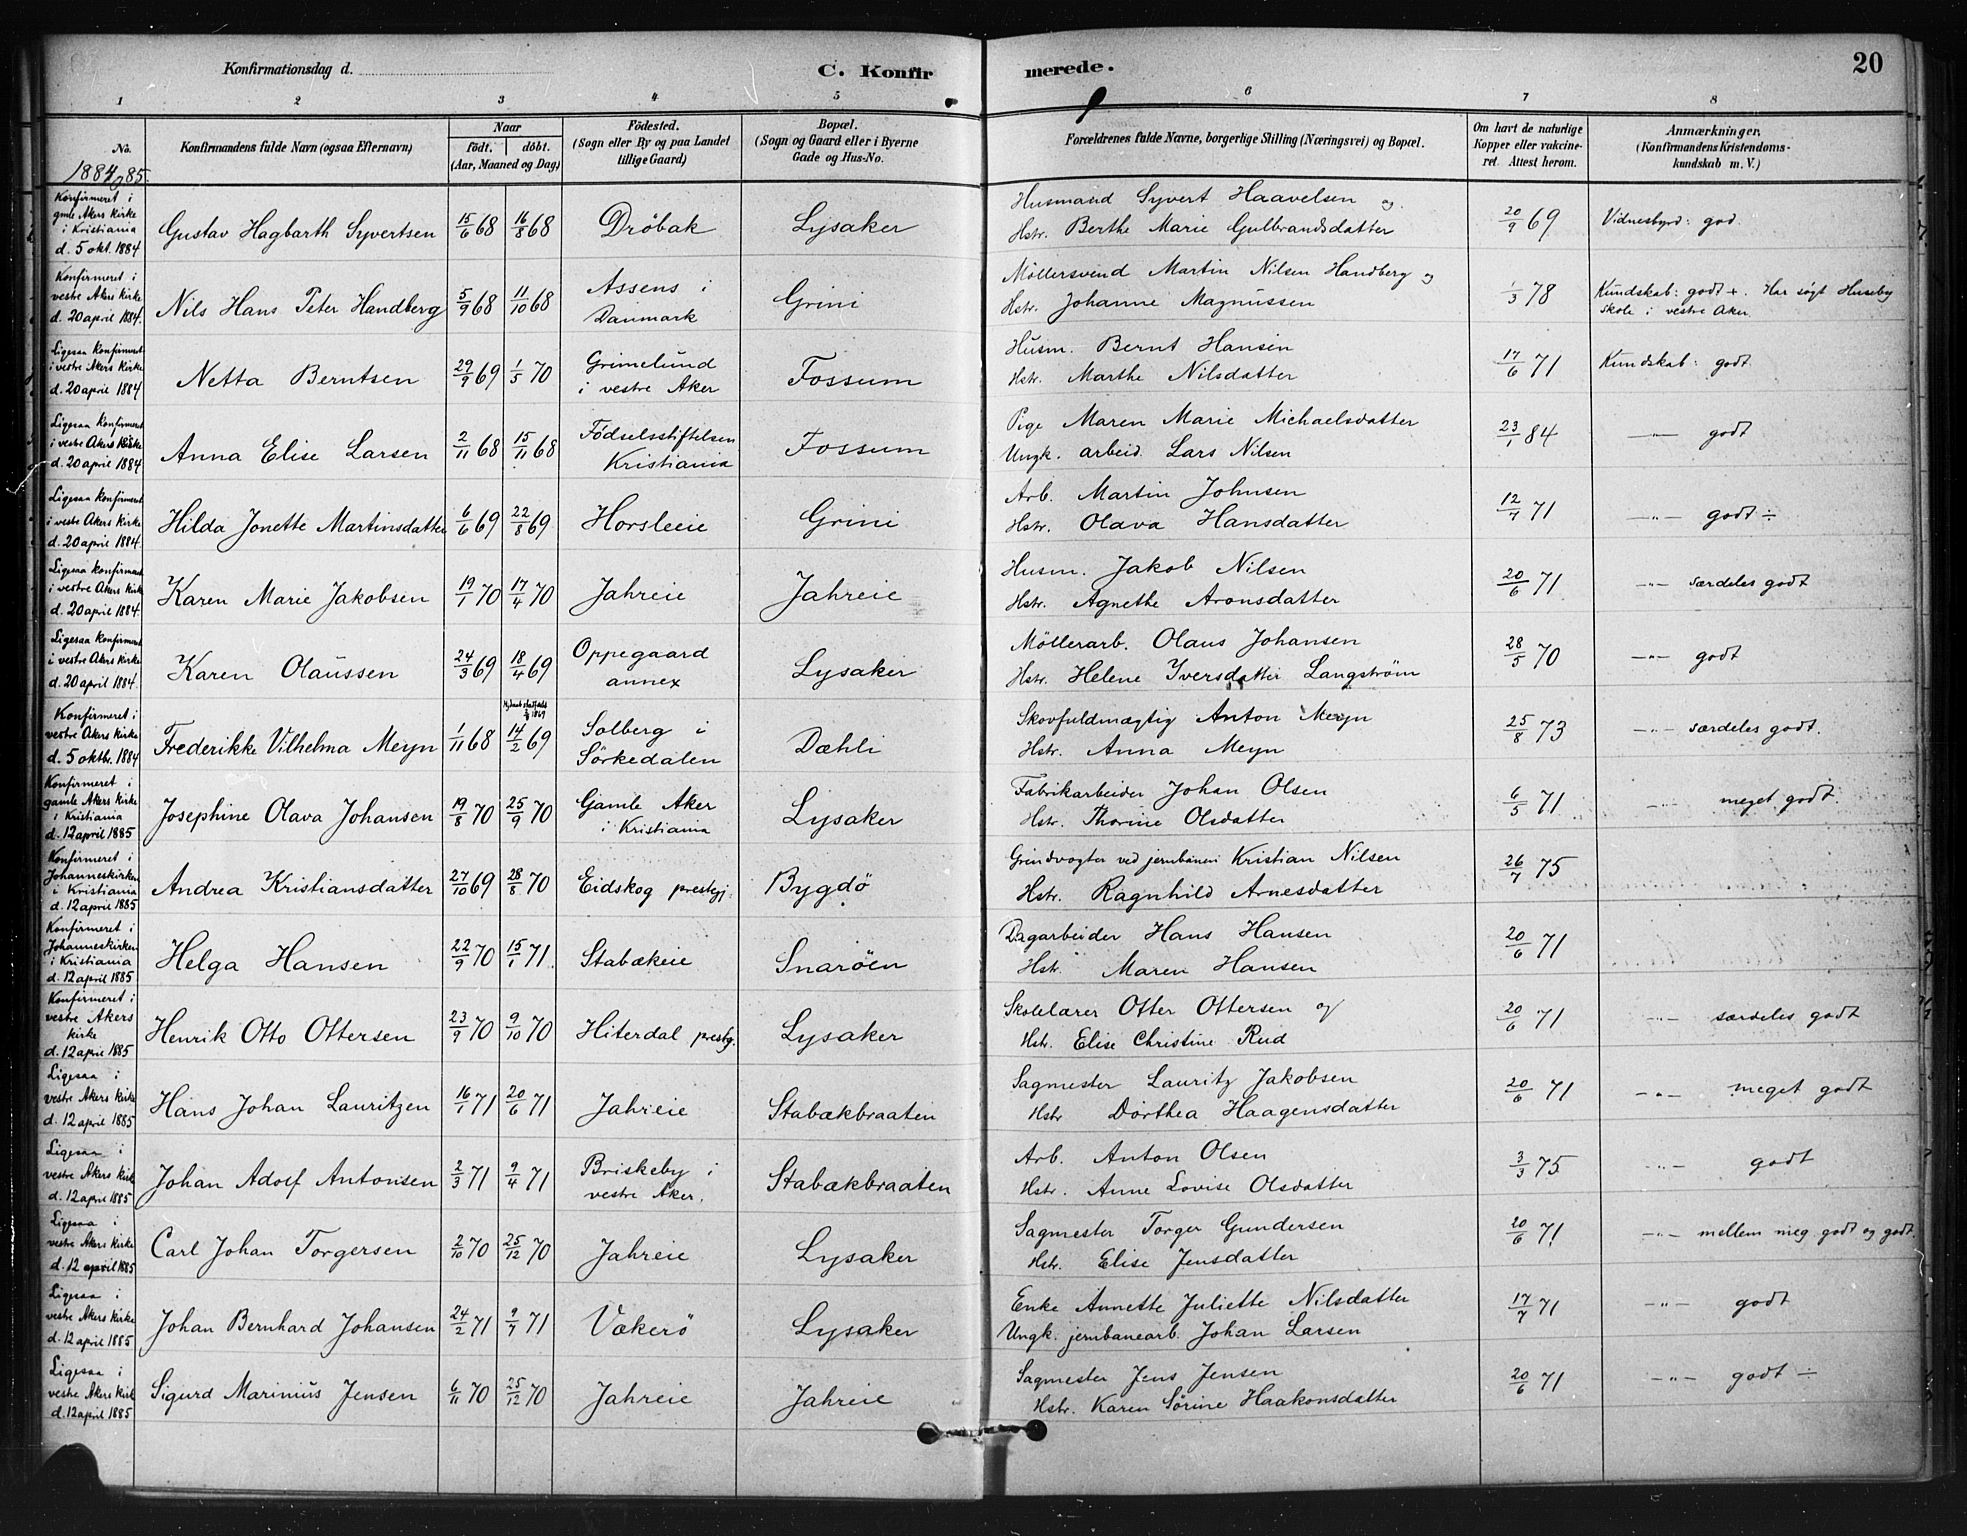 Konfirmationsdag d.
C. Konfirmerede.
20
1 2 3 4 5 6 7 8
No.
Konfirmandens fulde Navn (ogsaa Efternavn)
Naar
födt. döbt.
(Aar, Maaned og Dag)
Födested.
(Sogn eller By og paa Landet
tillige Gaard)
Bopæl.
(Sogn og Gaard eller i Byerne
Gade og Hus-No.
Forældrenes fulde Navne, borgerlige Stilling (Næringsvei) og Bopæl.
Om havt de naturlige
Kopper eller vakcine-
ret. Attest herom.
Anmærkninger.
(Konfirmandens Kristendoms-
kundskab m. V.)
1884 85.
Konfirmeret i
gmle Akers Kirke
i Kristiania
d. 5 okt. 1884.
Gustav Hagbarth Syvertsen
15/6 68
16/8 68
Dröbak
Lysaker
Husmand Syvert Haavelsen og
Hstr. Berthe Marie Gulbrandsdatter
20/9 69
Vidnesbyrd: god.
Konfirmeret i
vestre Akers Kirke
d. 20 april 1884.
Nils Hans Peter Handberg
5/9 68
11/10 68
Assens i
Danmark
Grini
Möllersvend Martin Nilsen Handberg og
Hstr. Johanne Magnussen
1/3 78
Kundskab: godt +. Har søgt Huseby
skole i vestre Aker
Ligesaa Konfirmeret
i vestre Akers Kirke
d. 20 april 1884
Netta Berntsen
29/9 69
1/5 70
Grimelund
i vestre Aker
Fossum
Husm. Bernt Hansen
Hstr. Marthe Nilsdatter
17/6 71
Kundskab: godt.
Ligesaa Konfirmeret
i vestre Akers Kirke
d. 20 april 1884
Anna Elise Larsen
2/11 68
15/11 68
Födselsstiftelsen
Kristiania
Fossum
Pige Maren Marie Michaelsdatter
Ungk. arbeid. Lars Nilsen
23/1 84
—"— godt
Ligesaa Konfirmeret
i vestre Akers Kirke
d. 20 april 1884.
Hilda Jonette Martinsdatter
6/6 69
22/8 69
Horsleie
Grini
Arb. Martin Johnsen
Hstr. Olava Hansdatter
12/7 71
—"— godt ÷
Ligesaa Konfirmeret
i vestre Akers Kirke
d. 20 april 1884.
Karen Marie Jakobsen
19/1 70
17/4 70
Jahreie
Jahreie
Husm. Jakob Nilsen
Hstr. Agnethe Aronsdatter
20/6 71
—"— særdeles godt
Ligesaa Konfirmeret
i vestre Akers Kirke
d. 20 april 1884.
Karen Olaussen
24/3 69
18/4 69
Oppegaard
annex
Lysaker
Möllerarb. Olaus Johansen
Hstr. Helene Iversdatter Langström
28/5 70
—"— godt
Konfirmeret i
vestre Akers Kirke
d. 5 oktbr. 1884
Frederikke Vilhelma Meyn
1/11 68
14/2 69
Solberg i
Sörkedalen
Dæhli
Skovfuldmægtig Anton Meyn
Hstr. Anna Meyn
25/8 73
—"— særdeles godt.
Konfirmeret i
gamle Akers Kirke
i Kristiania
d. 12 april 1885
Josephine Olava Johansen
19/8 70
25/9 70
Gamle Aker
i Kristiania
Lysaker
Fabrikarbeider Johan Olsen
Hstr. Thorine Olsdatter
6/5 71
—"— meget godt.
Konfirmeret i
Johanneskirken
i Kristiania
d. 12 april 1885
Andrea Kristiansdatter
27/10 69
28/8 70
Eidskog prestegj.
Bygdö
Grindvogter ved jernbanen Kristian Nilsen
Hstr. Ragnhild Arnesdatter
26/7 75
Konfirmeret i
Johanneskirken
i Kristiania
d. 12 april 1885
Helga Hansen
22/9 70
15/1 71
Stabækeie
Snaröen
Dagarbeider Hans Hansen
Hstr. Maren Hansen
20/6 71
Konfirmeret i
vestre Akers
kirke
d. 12 april 1885
Henrik Otto Ottersen
23/9 70
9/10 70
Hiterdal prestg.
Lysaker
Skolelærer Otter Ottersen og
Hstr. Elise Christine Rud
20/6 71
—"— særdeles godt
Ligesaa i
vestre Akers Kirke
d. 12 april 1885
Hans Johan Lauritzen
16/1 71
20/6 71
Jahreie
Stabækbraaten
Sagmester Lauritz Jakobsen
Hstr Dorthea Haagensdatter
20/6 71
—"— meget godt
Ligesaa i
vestre Akers kirke
d. 12 april 1885
Johan Adolf Antonsen
2/3 71
9/4 71
Briskeby i
vestre Aker.
Stabækbraaten
Arb. Anton Olsen
Hstr. Anne Lovise Olsdatter
3/3 75
—"— godt
Ligesaa i
vestre Akers Kirke
d. 12 april 1885
Carl Johan Torgersen
2/10 70
25/12 70
Jahreie
Lysaker
Sagmester Torger Gundersen
Hstr. Elise Jensdatter
20/6 71
—"— mellem meg godt og godt.
Ligesaa i
vestre Akers Kirke
d. 12 april 1885
Johan Bernhard Johansen
24/2 71
9/7 71
Vækerö
Lysaker
Enke Annette Juliette Nilsdatter
Ungk. jernbanearb. Johan Larsen
17/7 71
—"— godt
Ligesaa i
vestre Akers Kirke
d. 12 april 1885
Sigurd Marinius Jensen
6/11 70
25/12 70
Jahreie
Jahreie
Sagmester Jens Jensen
Hstr. Karen Sörine Haakonsdatter
20/6 71
—"— godt ÷